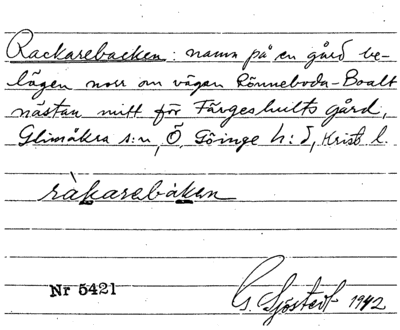 Rackarebacken: namn på en gård be-
lägen norr om vägen Rönneboda-Boalt
nästan mitt för Färgeshults gård,
Glimåkra s:n, Ö. Göinge h:d, Krist l.
ràkarebàken
Nr 5421
G. Sjöstedt 1942